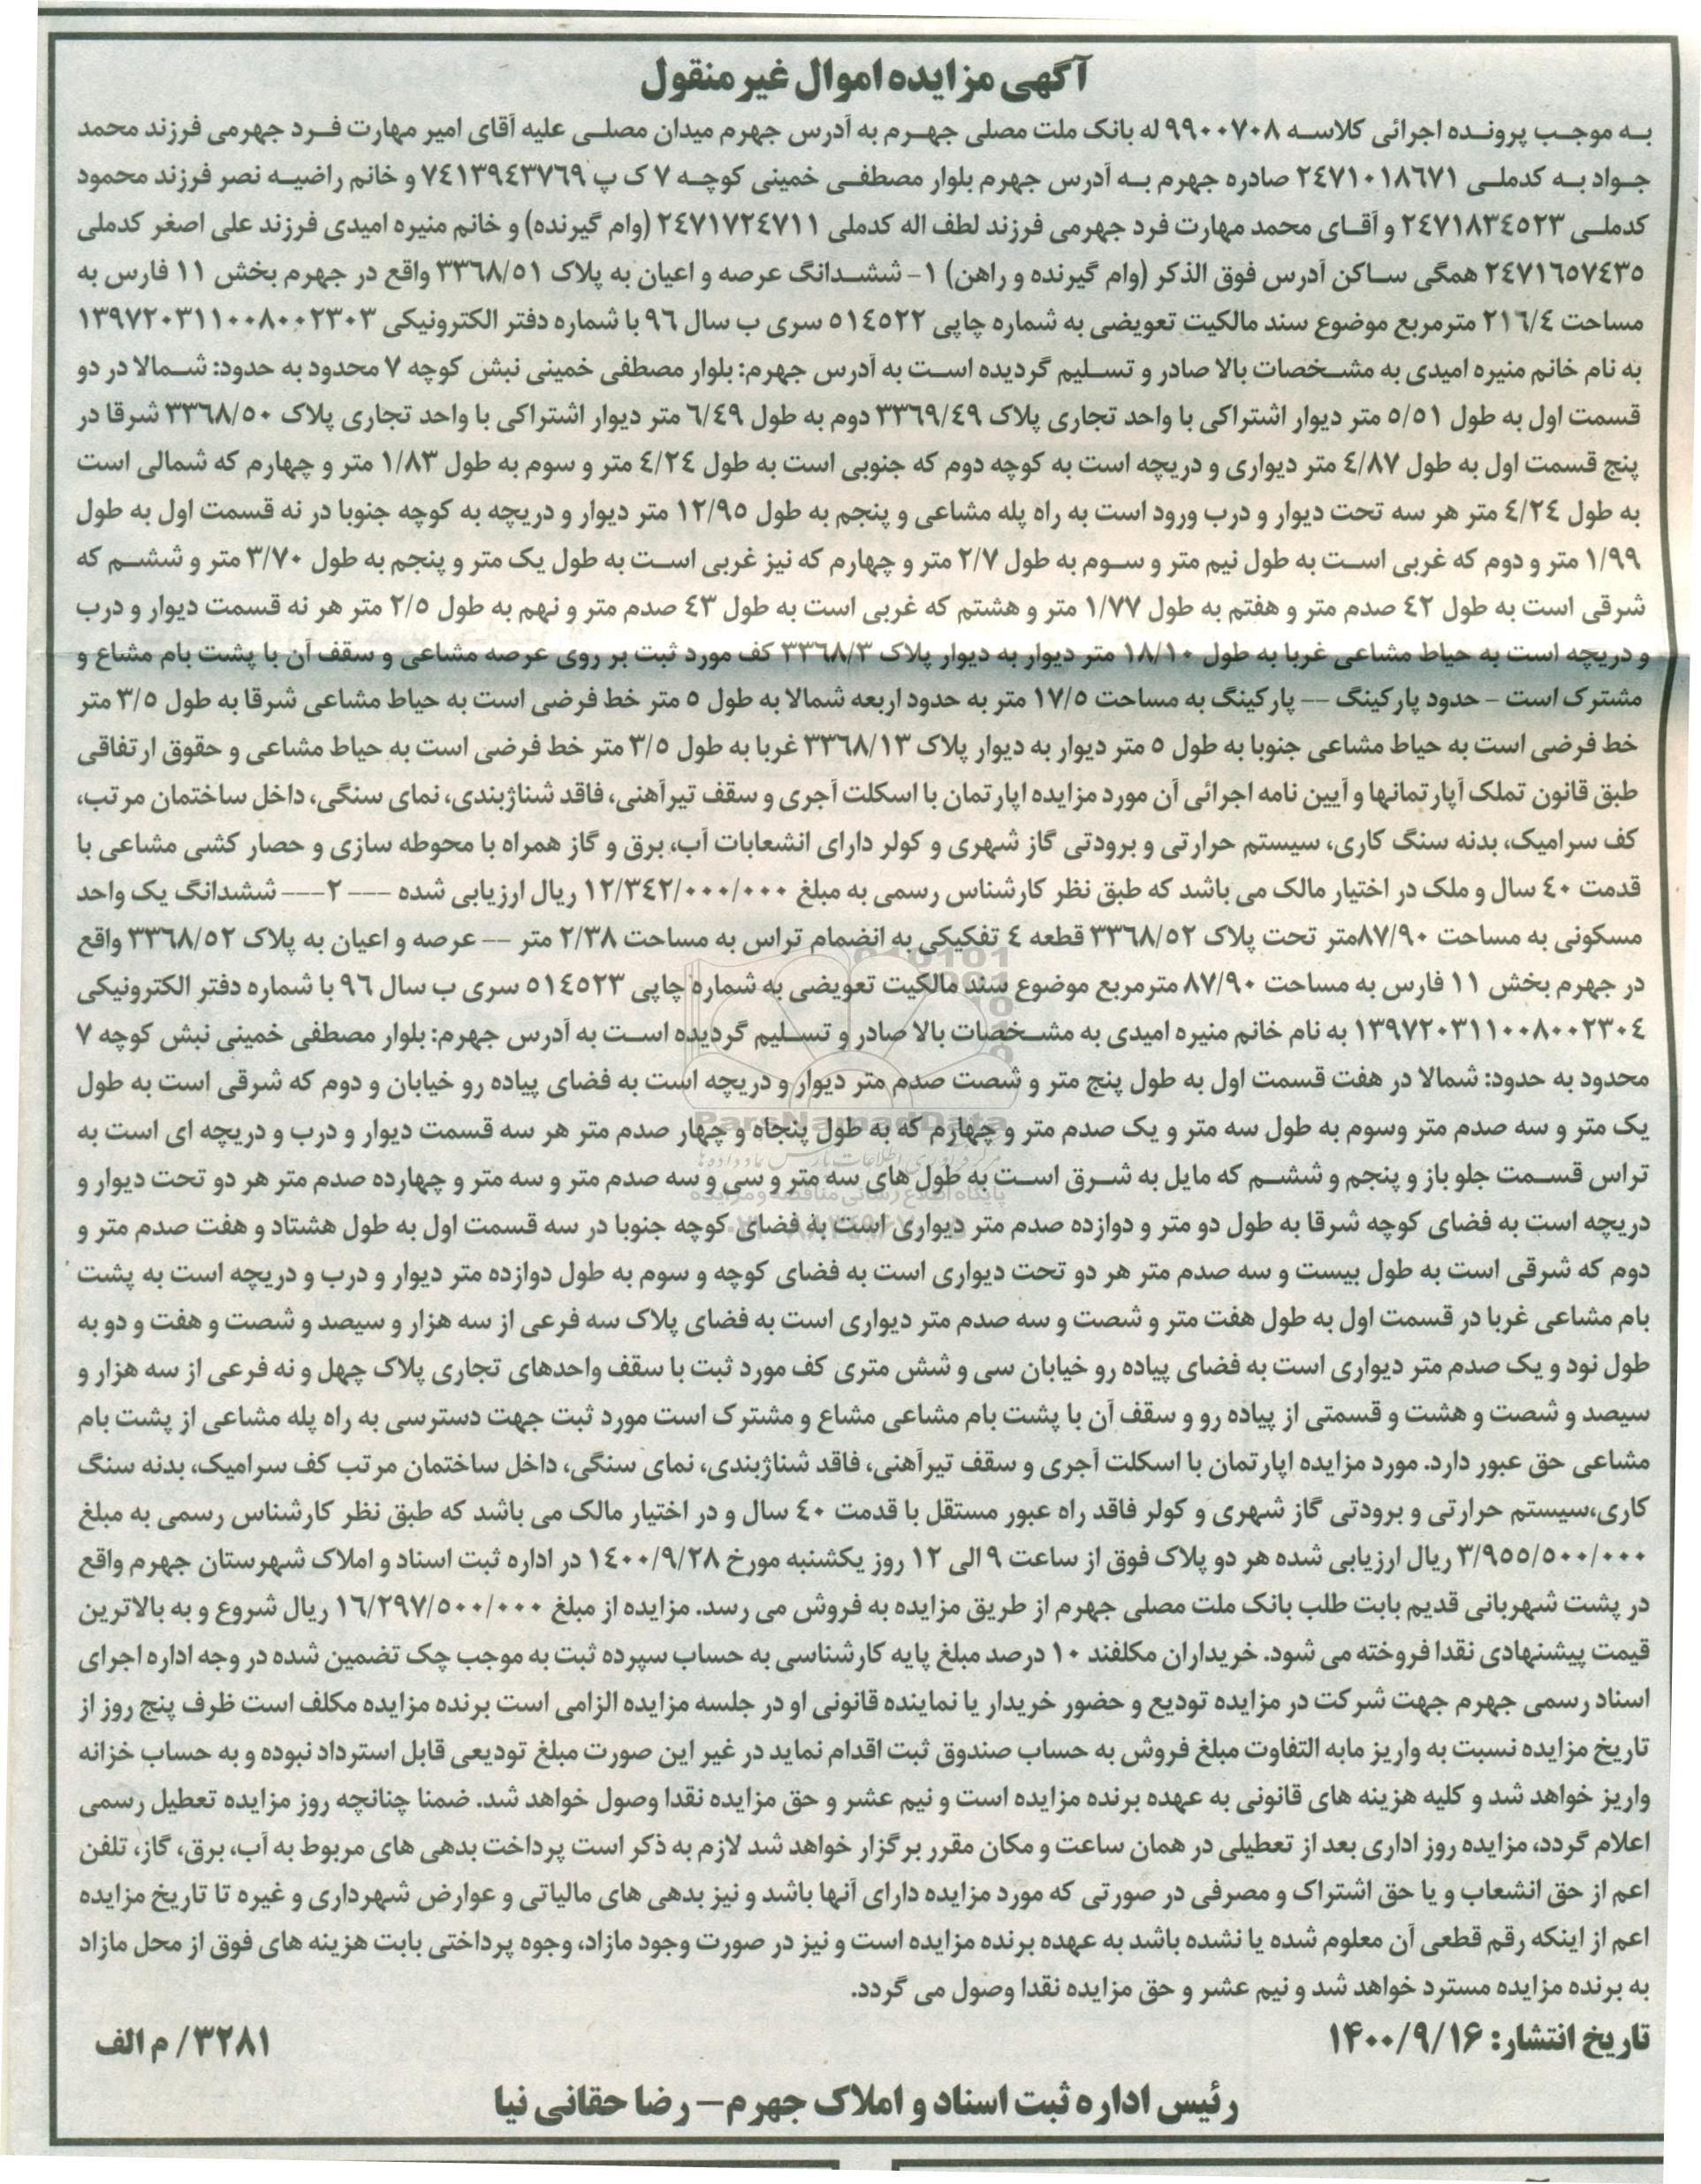 آگهی مزایده اموال غیر منقول
به موجب پرونده اجرائی کلاسه ۹۹۰۰۷۰۸ له بانک ملت مصلی جهرم به آدرس جهرم میدان مصلی علیه آقای امیر مهارت فرد جهرمی فرزند محمد
جواد به کدملی ۲۴۷۱۰۱۸۶۷۱ صادره جهرم به آدرس جهرم بلوار مصطفی خمینی کوچه ۷ ک پ ۷۴۱۳۹۴۳۷۶۹ و خانم راضیه نصر فرزند محمود
کدملی ۲۴۷۱۸۳۴۵۲۳ و آقای محمد مهارت فرد جهرمی فرزند لطف اله کدملی ۲۴۷۱۷۲۴۷۱۱ (وام گیرنده) و خانم منیره امیدی فرزند علی اصغر کدملی
۲۴۷۱۶۵۷۴۳۵ همگی ساکن آدرس فوق الذکر (وام گیرنده و راهن) ۱- ششدانگ عرصه و اعیان به پلاک ۳۳۶۸/۵۱ واقع در جهرم بخش ۱۱ فارس به
مساحت ۲۱۶/۴ مترمربع موضوع سند مالکیت تعویضی به شماره چاپی ۵۱۴۵۲۲ سری ب سال ۹۶ با شماره دفتر الکترونیکی ۱۳۹۷۲۰۳۱۱۰۰۸۰۰۲۳۰۳
به نام خانم منیره امیدی به مشخصات بالا صادر و تسلیم گردیده است به آدرس جهرم: بلوار مصطفی خمینی نبش کوچه ۷ محدود به حدود: شمالا در دو
قسمت اول به طول ۵/۵۱ متر دیوار اشتراکی با واحد تجاری پلاک ۳۳۶۹/۴۹ دوم به طول ۶/۴۹ متر دیوار اشتراکی با واحد تجاری پلاک ۳۳۶۸/۵۰ شرقا در
پنج قسمت اول به طول ۴/۸۷ متر دیواری و دریچه است به کوچه دوم که جنوبی است به طول ۴/۲۴ متر و سوم به طول ۱/۸۳ متر و چهارم که شمالی است
به طول ۴/۲۴ متر هر سه تحت دیوار و درب ورود است به راه پله مشاعی و پنجم به طول ۱۲/۹۵ متر دیوار و دریچه به کوچه جنوبا در نه قسمت اول به طول
۱/۹۹ متر و دوم که غربی است به طول نیم متر و سوم به طول ۲/۷ متر و چهارم که نیز غربی است به طول یک متر و پنجم به طول ۳/۷۰ متر و ششم که
شرقی است به طول ۴۲ صدم متر و هفتم به طول ۱/۷۷ متر و هشتم که غربی است به طول ۴۳ صدم متر و نهم به طول ۲/۵ متر هر نه قسمت دیوار و درب
و دریچه است به حیاط مشاعی غربا به طول ۱۸/۱۰ متر دیوار به دیوار پلاک ۳۳۶۸/۳ کف مورد ثبت بر روی عرصه مشاعی و سقف آن با پشت بام مشاع و
مشترک است - حدود پارکینگ -- پارکینگ به مساحت ۱۷/۵ متر به حدود اربعه شمالا به طول ۵ متر خط فرضی است به حیاط مشاعی شرقا به طول ۳/۵ متر
خط فرضی است به حیاط مشاعی جنوبا به طول ۵ متر دیوار به دیوار پلاک ۳۳۶۸/۱۳ غربا به طول ۳/۵ متر خط فرضی است به حیاط مشاعی و حقوق ارتفاقی
طبق قانون تملک آپارتمانها و آیین نامه اجرائی آن مورد مزایده اپارتمان با اسکلت آجری و سقف تیرآهنی، فاقد شناژبندی، نمای سنگی، داخل ساختمان مرتب،
کف سرامیک، بدنه سنگ کاری، سیستم حرارتی و برودتی گاز شهری و کولر دارای انشعابات آب، برق و گاز همراه با محوطه سازی و حصار کشی مشاعی با
قدمت ۴۰ سال و ملک در اختیار مالک می باشد که طبق نظر کارشناس رسمی به مبلغ ۱۲/۳۴۲/۰۰۰/۰۰۰ ریال ارزیابی شده --- ۲--- ششدانگ یک واحد
مسکونی به مساحت ۸۷/۹۰متر تحت پلاک ۳۳۶۸/۵۲ قطعه ۴ تفکیکی به انضمام تراس به مساحت ۲/۳۸ متر -- عرصه و اعیان به پلاک ۳۳۶۸/۵۲ واقع
در جهرم بخش ۱۱ فارس به مساحت ۸۷/۹۰ مترمربع موضوع سند مالکیت تعویضی به شماره چاپی ۵۱۴۵۲۳ سری ب سال ۹۶ با شماره دفتر الکترونیکی
۱۳۹۷۲۰۳۱۱۰۰۸۰۰۲۳۰۴ به نام خانم منیره امیدی به مشخصات بالا صادر و تسلیم گردیده است به آدرس جهرم: بلوار مصطفی خمینی نبش کوچه ۷
محدود به حدود: شمالا در هفت قسمت اول به طول پنج متر و شصت صدم متر دیوار و دریچه است به فضای پیاده رو خیابان و دوم که شرقی است به طول
یک متر و سه صدم متر وسوم به طول سه متر و یک صدم متر و چهارم که به طول پنجاه و چهار صدم متر هر سه قسمت دیوار و درب و دریچه ای است به
تراس قسمت جلو باز و پنجم و ششم که مایل به شرق است به طول های سه متر و سی و سه صدم متر و سه متر و چهارده صدم متر هر دو تحت دیوار و
دریچه است به فضای کوچه شرقا به طول دو متر و دوازده صدم متر دیواری است به فضای کوچه جنوبا در سه قسمت اول به طول هشتاد و هفت صدم متر و
دوم که شرقی است به طول بیست و سه صدم متر هر دو تحت دیواری است به فضای کوچه و سوم به طول دوازده متر دیوار و درب و دریچه است به پشت
بام مشاعی غربا در قسمت اول به طول هفت متر و شصت و سه صدم متر دیواری است به فضای پلاک سه فرعی از سه هزار و سیصد و شصت و هفت و دو به
طول نود و یک صدم متر دیواری است به فضای پیاده رو خیابان سی و شش متری کف مورد ثبت با سقف واحدهای تجاری پلاک چهل و نه فرعی از سه هزار و
سیصد و شصت و هشت و قسمتی از پیاده رو و سقف آن با پشت بام مشاعی مشاع و مشترک است مورد ثبت جهت دسترسی به راه پله مشاعی از پشت بام
مشاعی حق عبور دارد. مورد مزایده اپارتمان با اسکلت آجری و سقف تیرآهنی، فاقد شناژبندی، نمای سنگی، داخل ساختمان مرتب کف سرامیک، بدنه سنگ
کاری،سیستم حرارتی و برودتی گاز شهری و کولر فاقد راه عبور مستقل با قدمت ۴۰ سال و در اختیار مالک می باشد که طبق نظر کارشناس رسمی به مبلغ
۳/۹۵۵/۵۰۰/۰۰۰ ریال ارزیابی شده هر دو پلاک فوق از ساعت ۹ الی ۱۲ روز یکشنبه مورخ ۱۴۰۰/۹/۲۸ در اداره ثبت اسناد و املاک شهرستان جهرم واقع
در پشت شهربانی قدیم بابت طلب بانک ملت مصلی جهرم از طریق مزایده به فروش می رسد. مزایده از مبلغ ۱۶/۲۹۷/۵۰۰/۰۰۰ ریال شروع و به بالاترین
قیمت پیشنهادی نقدا فروخته می شود. خریداران مکلفند ۱۰ درصد مبلغ پایه کارشناسی به حساب سپرده ثبت به موجب چک تضمین شده در وجه اداره اجرای
اسناد رسمی جهرم جهت شرکت در مزایده تودیع و حضور خریدار یا نماینده قانونی او در جلسه مزایده الزامی است برنده مزایده مکلف است ظرف پنج روز از
تاریخ مزایده نسبت به واریز مابه التفاوت مبلغ فروش به حساب صندوق ثبت اقدام نماید در غیر این صورت مبلغ تودیعی قابل استرداد نبوده و به حساب خزانه
واریز خواهد شد و کلیه هزینه های قانونی به عهده برنده مزایده است و نیم عشر و حق مزایده نقدا وصول خواهد شد. ضمنا چنانچه روز مزایده تعطیل رسمی
اعلام گردد، مزایده روز اداری بعد از تعطیلی در همان ساعت و مکان مقرر برگزار خواهد شد لازم به ذکر است پرداخت بدهی های مربوط به آب، برق، گاز، تلفن
اعم از حق انشعاب و یا حق اشتراک و مصرفی در صورتی که مورد مزایده دارای آنها باشد و نیز بدهی های مالیاتی و عوارض شهرداری و غیره تا تاریخ مزایده
اعم از اینکه رقم قطعی آن معلوم شده یا نشده باشد به عهده برنده مزایده است و نیز در صورت وجود مازاد، وجوه پرداختی بابت هزینه های فوق از محل مازاد
به برنده مزایده مسترد خواهد شد و نیم عشر و حق مزایده نقدا وصول می گردد.
تاریخ انتشار: ۱۴۰۰/۹/۱۶
۳۲۸۱/ م الف
رئیس اداره ثبت اسناد و املاک جهرم- رضا حقانی نیا
ParsNamadData
پایگاه اطلاع رسانی مناقصه و مزایده